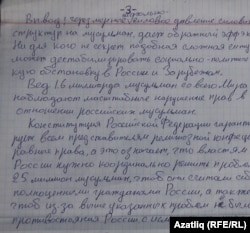 -3-
Вывод: чрезмерное силовое давление силовых
структур на мусульман, даст обратный эффект
Ни для кого не секрет подобная сложная ситу
может дестабилизировать социально-политиче
кую обстановку в России и Зарубежом.
Вед. 1.6 миллиарда мусульман со всего Мира
наблюдают настойчивое нарушение прав в
отношении российских мусульман.
Конституция Российской Федерации гаранти
рует всем представителям конфесси
равные права, а это означает, что властям
России нужно решить пробле
25 миллион мусульман, чтоб они считали себ
полноценными гражданами России, а так же
чтоб из за выше указанных проблем не было
противостояния России с
Azatliq (RFE/RL)